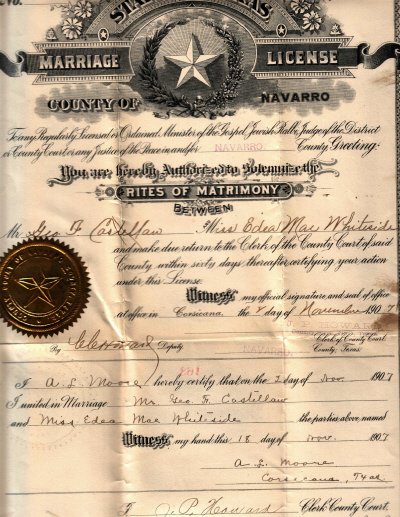 No.
STATE OF TEXAS
MARRIAGE LICENSE
COUNTY OF NAVARRO
To any Regularly Licensed or Ordained Minister of the Gospel, Jewish Rabbi, Judge of the District
or County Court or any Justice of the Peace in and for NAVARRO County Greeting:
You are hereby Authorized to Solemnize the
RITES OF MATRIMONY
BETWEEN
Mr. Geo F Castellaw Miss Edea Mae Whiteside
and make due return to the Clerk of the County Court of said
County within sixty days thereafter certifying your action
under this License
Witness my official signature and seal of office
at office in Corsicana the 2 day of November 1907
Clerk of County Court
By Deputy NAVARRO County, Texas.
I A. L. Moore hereby certify that on the 2 day of Nov. 1907
I united in Marriage Mr. Geo. F. Castellaw
and Miss Edea Mae Whiteside the parties above named
Witness my hand this 18 day of Nov. 1907
A. L. Moore
Corsicana, Texas
I J. P. Howard Clerk County Court.